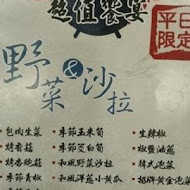 超值饗宴
平日
限定
野菜&沙拉
・包肉生菜
・烤香菇
・烤杏鮑菇
・季節青椒
・季節玉米筍
・季節茭白筍
・和風野菜沙拉
・和風洋蔥小黃瓜
・生辣椒
・椒鹽油蔥
・韓式泡菜
・招牌黃金泡菜